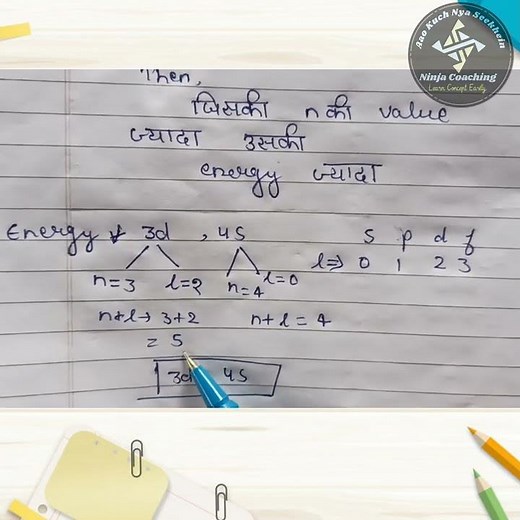 Aao Kuch Nya Seekhein
Ninja Coaching
Learn Concept Easily
Then,
जिसकी n की value
ज्यादा उसकी
energy ज्यादा
Energy 3d , 4s
s p d f
l⇒ 0 1 2 3
n=3 l=2 n=4 l=0
n+l→ 3+2 n+l=4
= 5
3d 4s